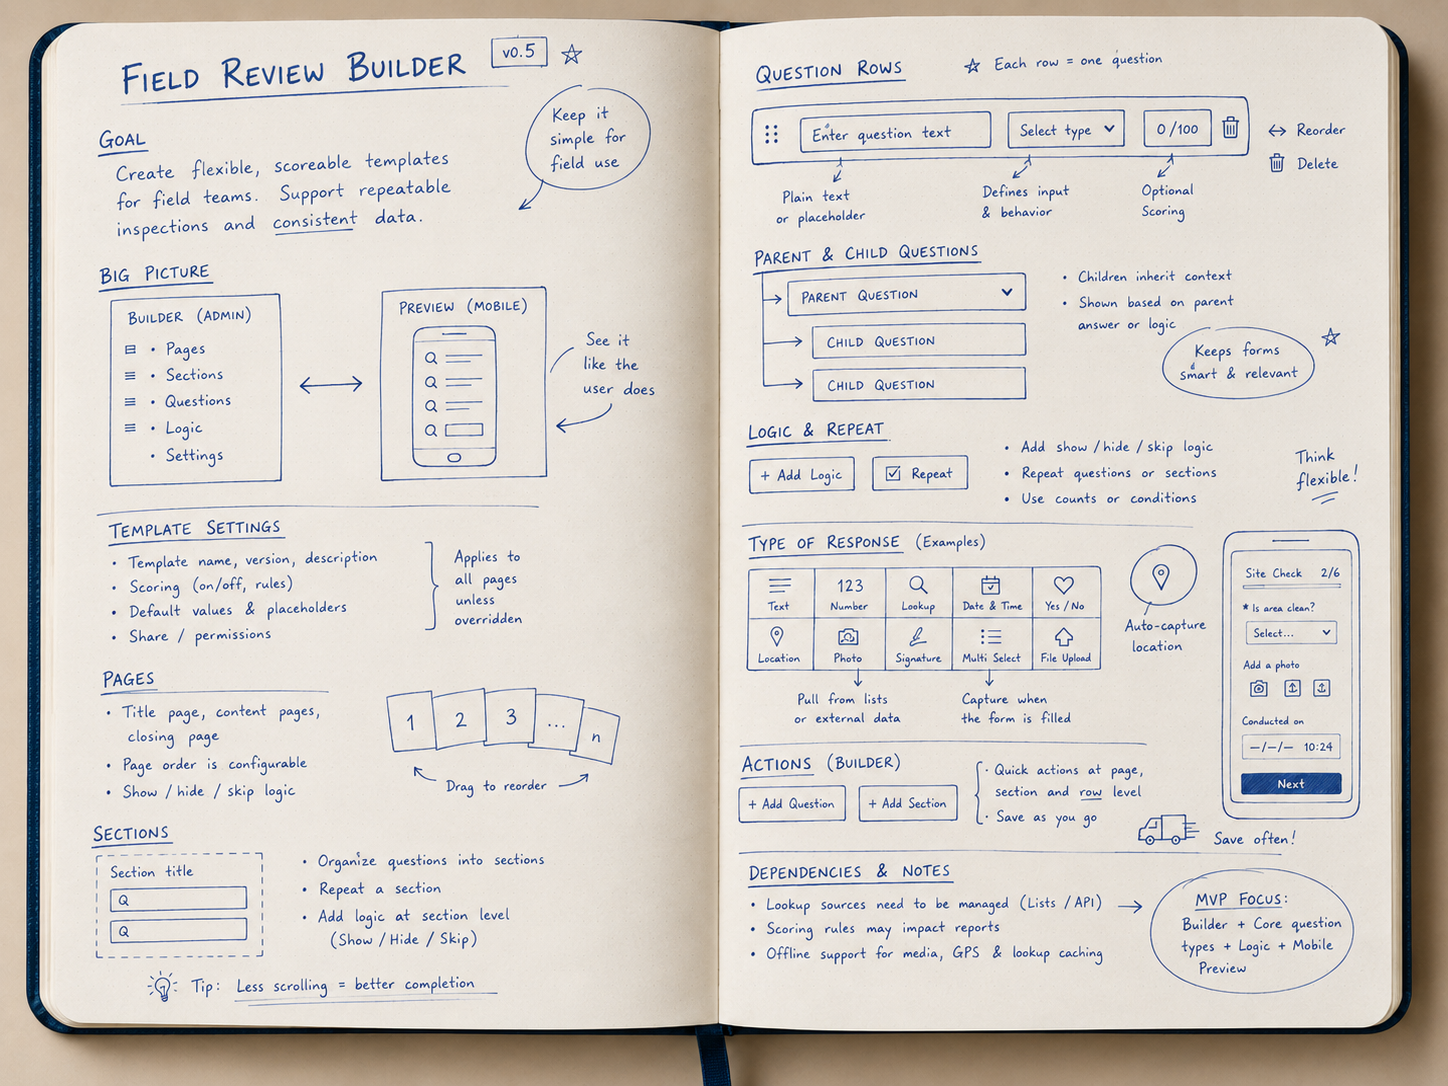 FIELD REVIEW BUILDER
v0.5
Keep it
simple for
field use
GOAL
Create flexible, scoreable templates
for field teams. Support repeatable
inspections and consistent data.
BIG PICTURE
BUILDER (ADMIN)
• Pages
• Sections
• Questions
• Logic
• Settings
PREVIEW (MOBILE)
See it
like the
user does
TEMPLATE SETTINGS
• Template name, version, description
• Scoring (on/off, rules)
• Default values & placeholders
• Share / permissions
Applies to
all pages
unless
overridden
PAGES
• Title page, content pages,
closing page
• Page order is configurable
• Show / hide / skip logic
1 2 3 ... n
Drag to reorder
SECTIONS
Section title
Q
Q
• Organize questions into sections
• Repeat a section
• Add logic at section level
(Show / Hide / Skip)
Tip: Less scrolling = better completion
QUESTION ROWS
☆ Each row = one question
Enter question text
Select type
0/100
↔ Reorder
Delete
Plain text
or placeholder
Defines input
& behavior
Optional
Scoring
PARENT & CHILD QUESTIONS
PARENT QUESTION
CHILD QUESTION
CHILD QUESTION
• Children inherit context
• Shown based on parent
answer or logic
Keeps forms
smart & relevant
LOGIC & REPEAT
+ Add Logic
Repeat
• Add show / hide / skip logic
• Repeat questions or sections
• Use counts or conditions
Think
flexible!
TYPE OF RESPONSE (Examples)
Text
123
Number
Lookup
Date & Time
Yes / No
Location
Photo
Signature
Multi Select
File Upload
Pull from lists
or external data
Capture when
the form is filled
Auto-capture
location
Site Check 2/6
* Is area clean?
Select...
Add a photo
Conducted on
—/—/— 10:24
Next
ACTIONS (BUILDER)
+ Add Question
+ Add Section
• Quick actions at page,
section and row level
• Save as you go
Save often!
DEPENDENCIES & NOTES
• Lookup sources need to be managed (Lists / API) →
• Scoring rules may impact reports
• Offline support for media, GPS & lookup caching
MVP FOCUS:
Builder + Core question
types + Logic + Mobile
Preview